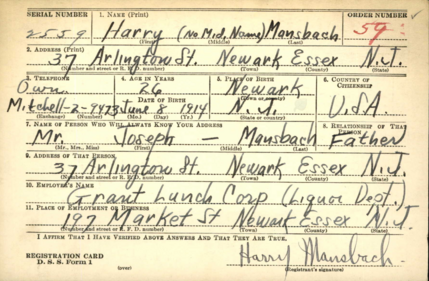 SERIAL NUMBER 1. NAME (Print) ORDER NUMBER
2559 Harry (No Mid. Name) Mansbach 59
(First) (Middle) (Last)
2. ADDRESS (Print)
37 Arlington St. Newark Essex N.J.
(Number and street or R. F. D. number) (Town) (County) (State)
3. TELEPHONE 4. AGE IN YEARS 5. PLACE OF BIRTH 6. COUNTRY OF CITIZENSHIP
Own 26 Newark
DATE OF BIRTH (Town or county)
Mitchell-2-9973 June 8 1914 N.J. U.S.A.
(Exchange) (Number) (Mo.) (Day) (Yr.) (State or country)
7. NAME OF PERSON WHO WILL ALWAYS KNOW YOUR ADDRESS 8. RELATIONSHIP OF THAT PERSON
Mr. Joseph — Mansbach Father
(Mr., Mrs., Miss) (First) (Middle) (Last)
9. ADDRESS OF THAT PERSON
37 Arlington St. Newark Essex N.J.
(Number and street or R. F. D. number) (Town) (County) (State)
10. EMPLOYER'S NAME
Grant Lunch Corp (Liquor Dept.)
11. PLACE OF EMPLOYMENT OR BUSINESS
197 Market St Newark Essex N.J.
(Number and street or R. F. D. number) (Town) (County) (State)
I AFFIRM THAT I HAVE VERIFIED ABOVE ANSWERS AND THAT THEY ARE TRUE.
REGISTRATION CARD
D. S. S. Form 1 (over) Harry Mansbach
(Registrant's signature)